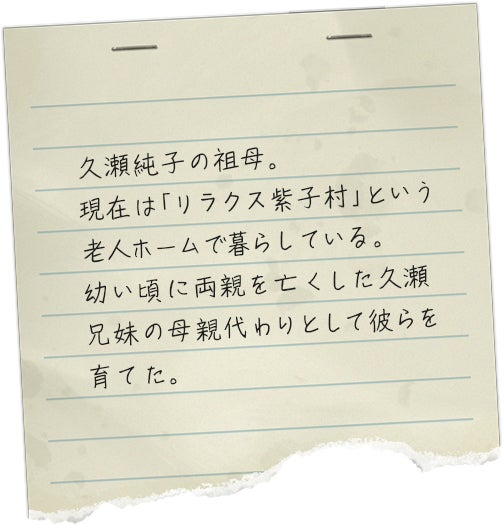 久瀬純子の祖母。
現在は「リラクス紫子村」という
老人ホームで暮らしている。
幼い頃に両親を亡くした久瀬
兄妹の母親代わりとして彼らを
育てた。